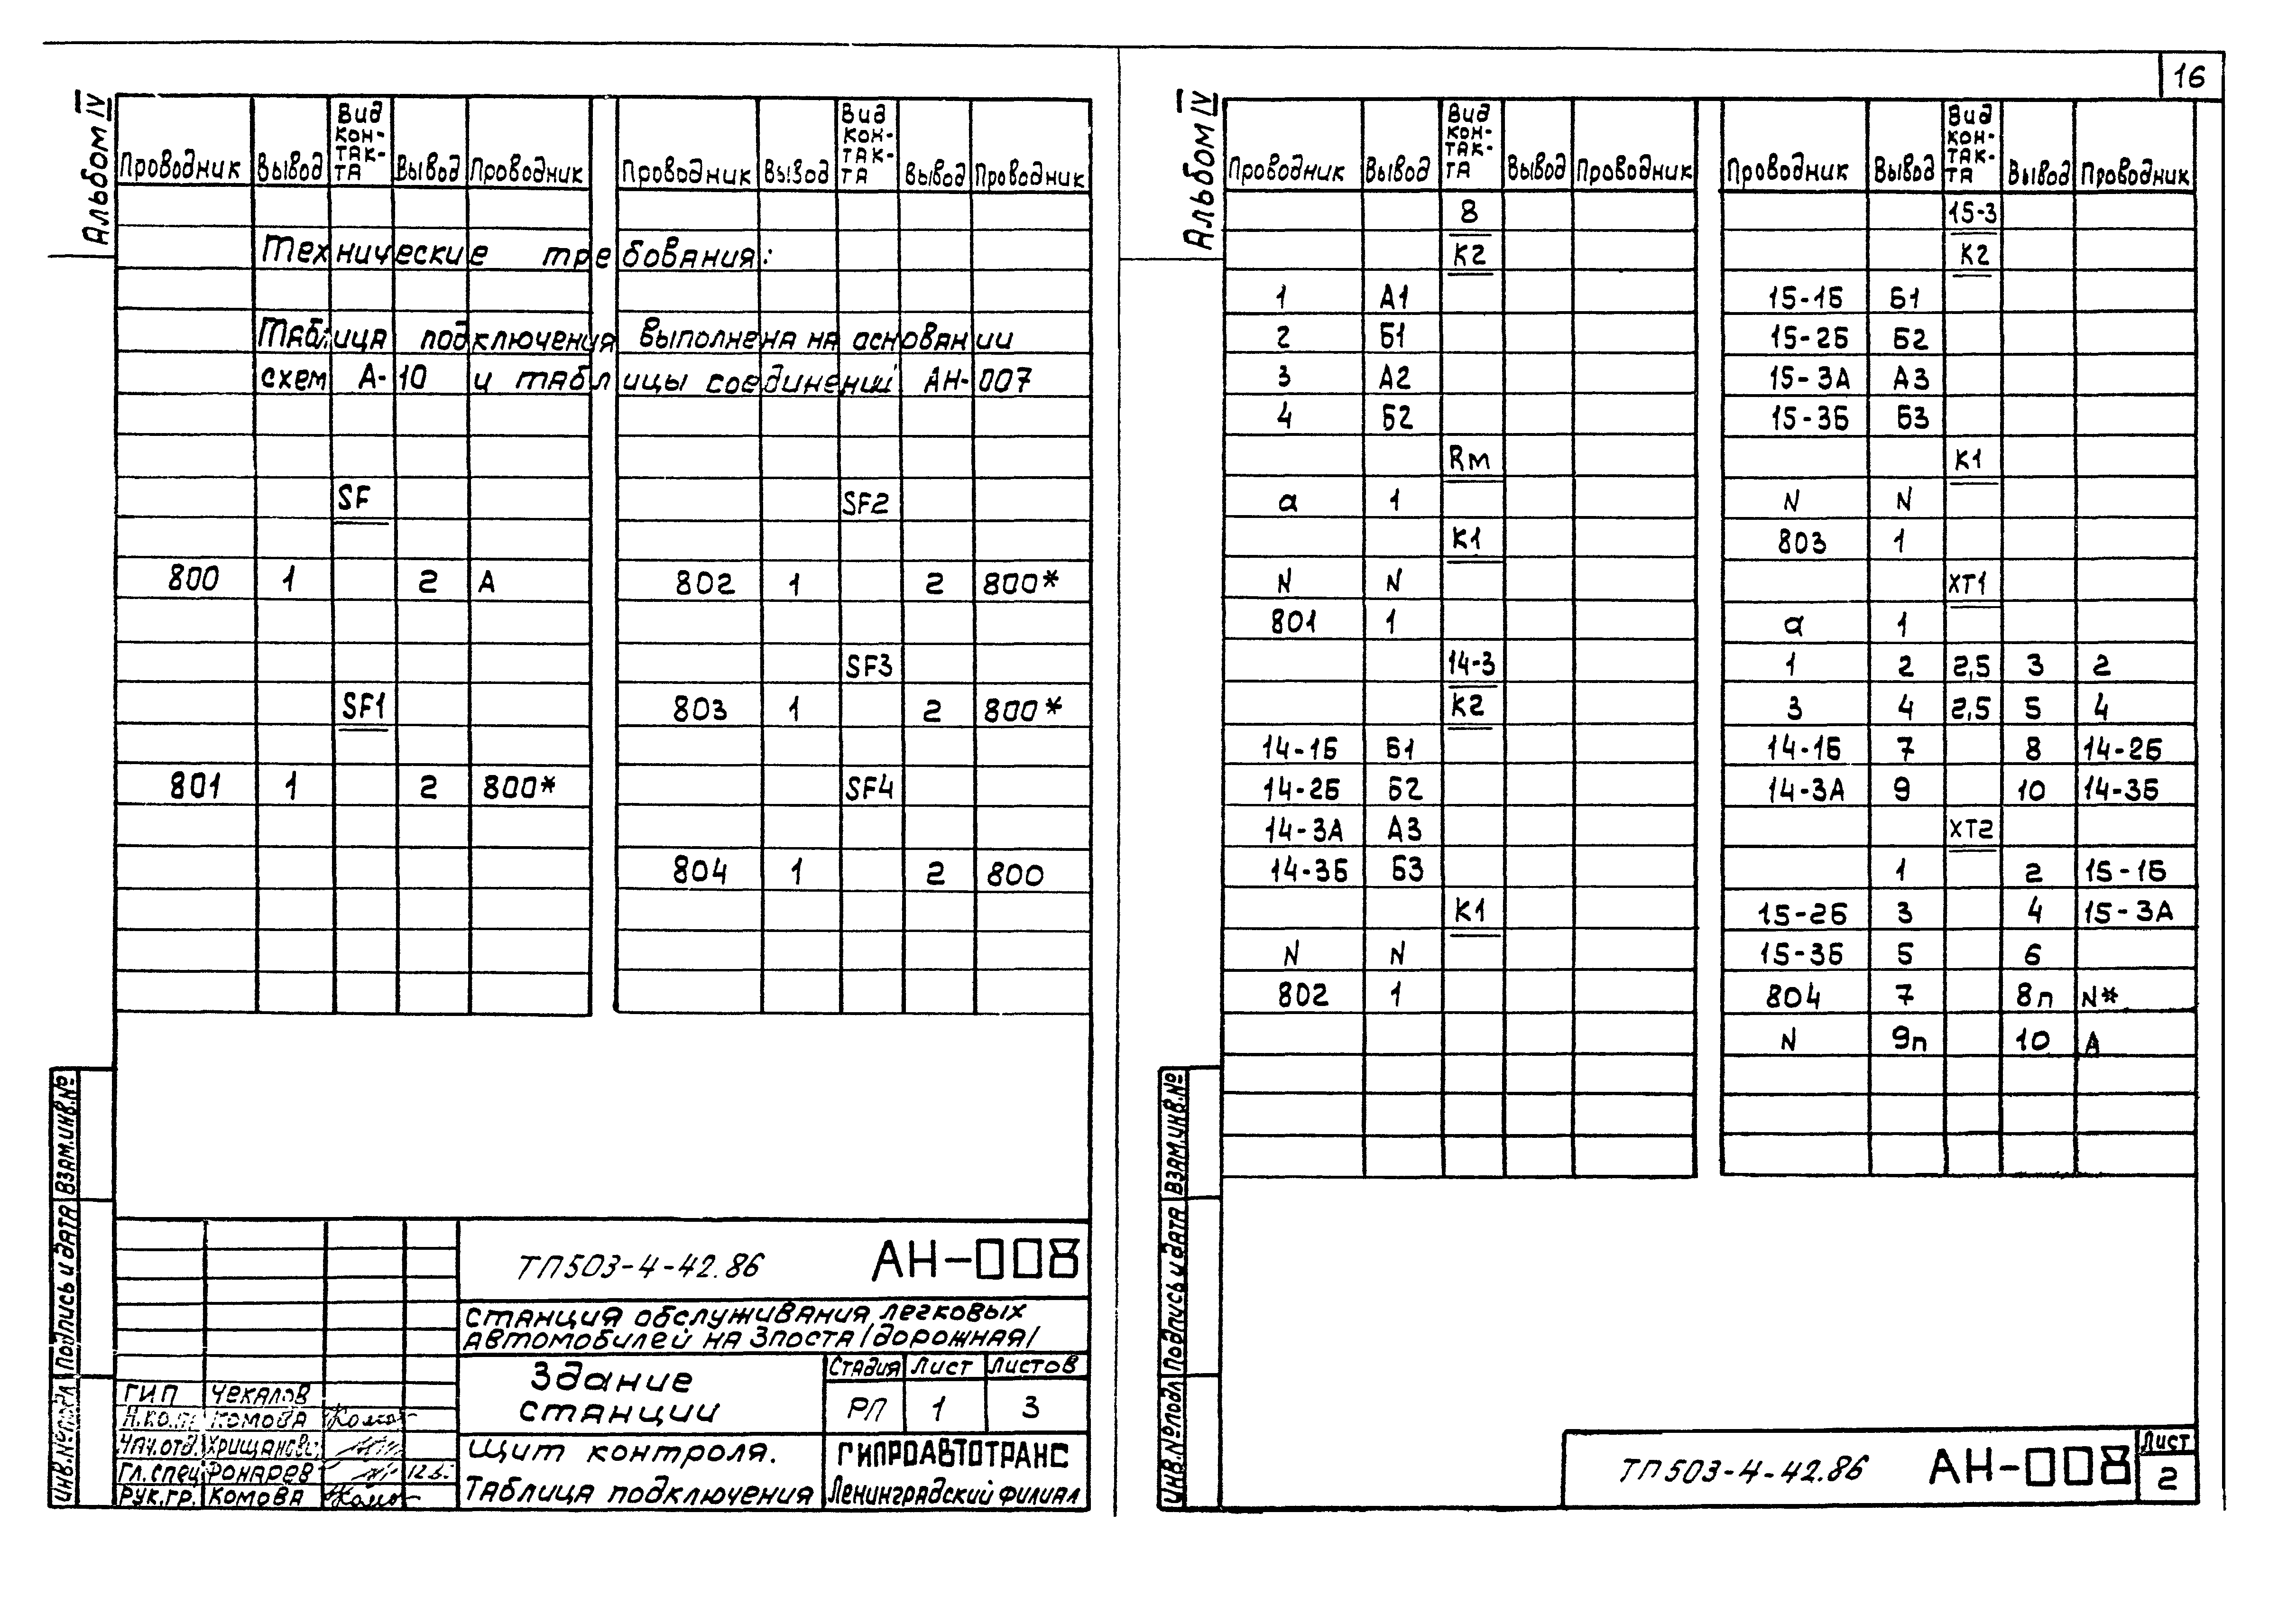 16
Альбом IV
Проводник Вывод Вид контакта Вывод Проводник Проводник Вывод Вид контакта Вывод Проводник
Технические требования:
Таблица подключения выполнена на основании
схем А-10 и таблицы соединений АН-007
SF SF2
800 1 2 А 802 1 2 800*
SF3
SF1 803 1 2 800*
801 1 2 800* SF4
804 1 2 800
ТП503-4-42.86 АН-008
Станция обслуживания легковых
автомобилей на 3поста /дорожная/
Здание
станции
Стадия Лист Листов
РП 1 3
Щит контроля.
Таблица подключения
ГИПРОАВТОТРАНС
Ленинградский филиал
ГИП Чекалов
Н.ко.
Комова
Нач.отд.
Гл.спец Фонарев
Рук.гр. Комова
Инв.№подл Подпись и дата Взам.инв.№
Альбом IV
Проводник Вывод Вид контакта Вывод Проводник
8
К2
1 А1
2 Б1
3 А2
4 Б2
Rм
а 1
К1
N N
801 1
14-3
К2
14-1Б Б1
14-2Б Б2
14-3А А3
14-3Б Б3
К1
N N
802 1
Проводник Вывод Вид контакта Вывод Проводник
15-3
К2
15-1Б Б1
15-2Б Б2
15-3А А3
15-3Б Б3
К1
N N
803 1
ХТ1
а 1
1 2 2,5 3 2
3 4 2,5 5 4
14-1Б 7 8 14-2Б
14-3А 9 10 14-3Б
ХТ2
1 2 15-1Б
15-2Б 3 4 15-3А
15-3Б 5 6
804 7 8п N*
N 9п 10 А
Инв.№подл Подпись и дата Взам.инв.№
ТП503-4-42.86 АН-008
Лист
2